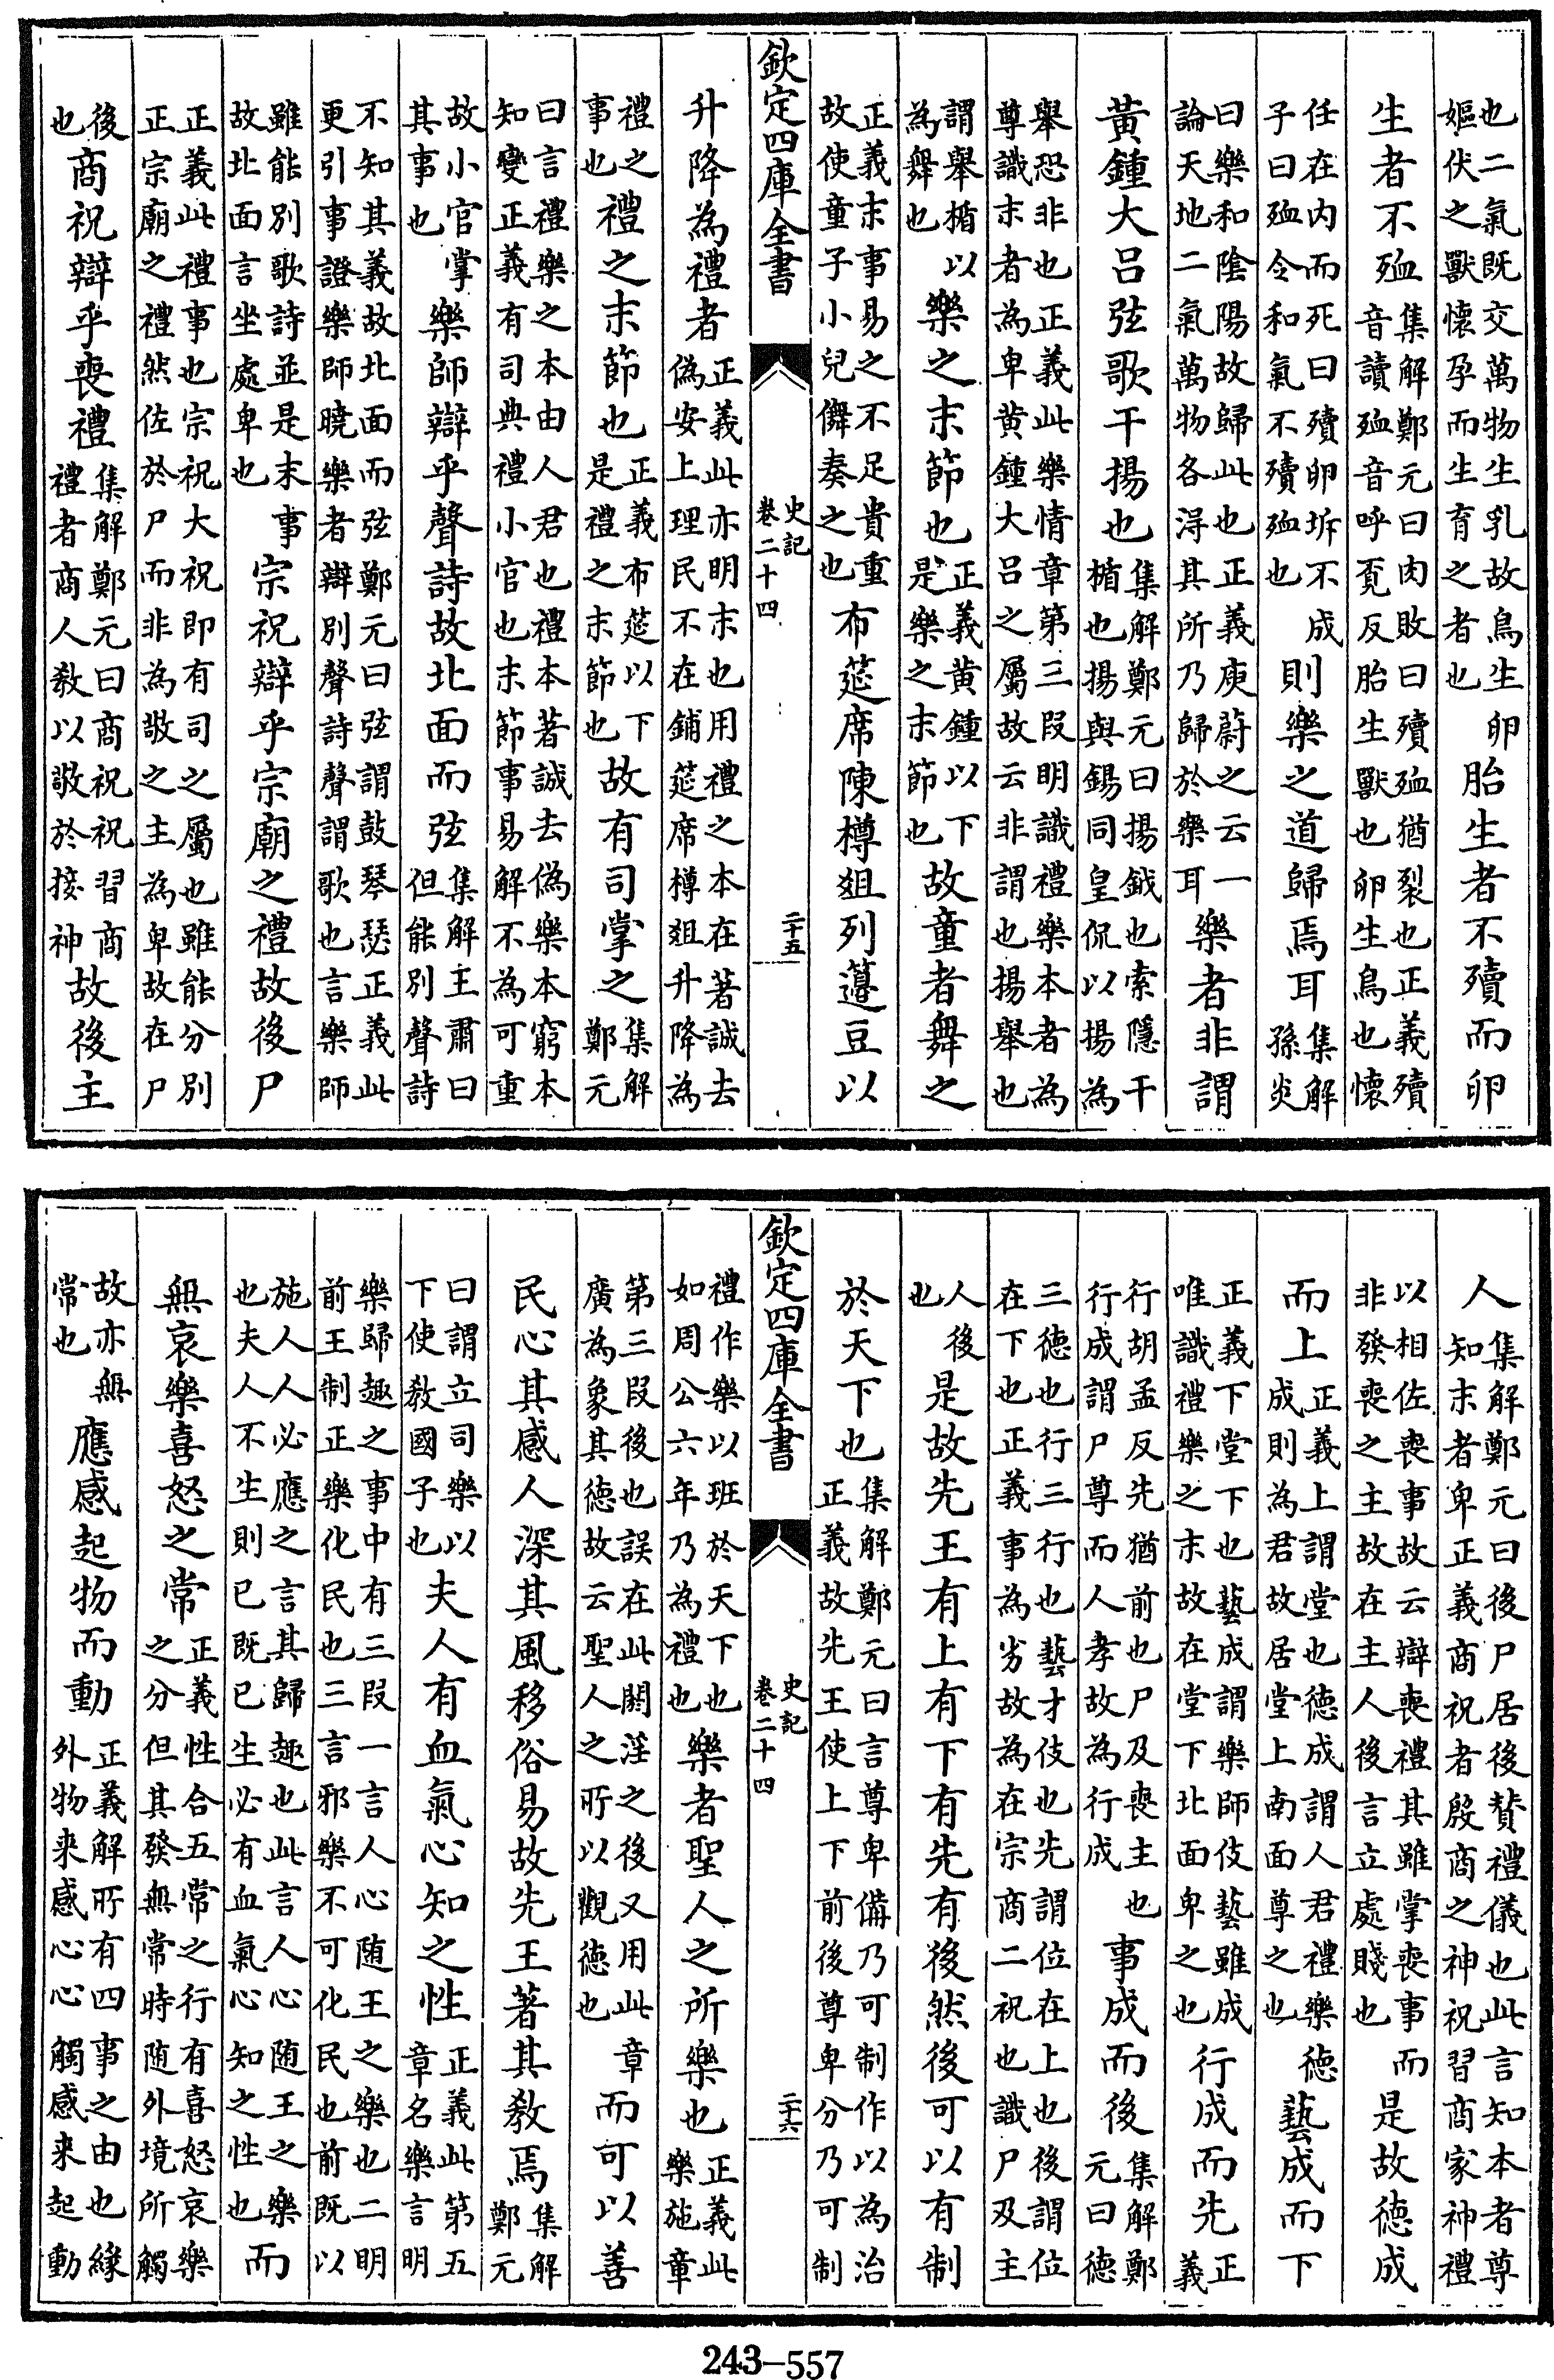 也二氣既交萬物生乳故鳥生卵嫗伏之獸懷孕而生育之者也胎生者不殰而卵
生者不殈集解鄭元曰肉敗曰殰殈猶裂也正義殰音讀殈音呼覔反胎生獸也卵生鳥也懷
任在内而死曰殰卵坼不成子曰殈令和氣不殰殈也則樂之道歸焉耳集解孫炎
曰樂和陰陽故歸此也正義庾蔚之云一論天地二氣萬物各得其所乃歸於樂耳樂者非謂
黄鍾大吕弦歌干揚也集解鄭元曰揚鉞也索隱干楯也揚與錫同皇侃以揚為
舉恐非也正義此樂情章第三段明識禮樂本者為尊識末者為卑黄鍾大吕之屬故云非謂也揚舉也
謂舉楯以為舞也樂之末節也正義黄鍾以下是樂之末節也故童者舞之
正義末事易之不足貴重故使童子小兒儛奏之也布筵席陳樽俎列籩豆以
欽定四庫全書 史記卷二十四 二十五
升降為禮者正義此亦明末也用禮之本在著誠去偽安上理民不在鋪筵席樽俎升降為
禮之事也禮之末節也正義布筵以下是禮之末節也故有司掌之集解鄭元
曰言禮樂之本由人君也禮本著誠去偽樂本窮本知變正義有司典禮小官也末節事易解不為可重
故小官掌其事也樂師辯乎聲詩故北面而弦集解王肅曰但能别聲詩
不知其義故北面而弦鄭元曰弦謂鼓琴瑟正義此更引事證樂師曉樂者辯别聲詩聲謂歌也言樂師
雖能别歌詩並是末事故北面言坐處卑也宗祝辯乎宗廟之禮故後尸
正義此禮事也宗祝大祝即有司之屬也雖能分别正宗廟之禮然佐於尸而非為敬之主為卑故在尸
後也商祝辯乎喪禮集解鄭元曰商祝祝習商禮者商人教以敬於接神故後主
人集解鄭元曰後尸居後贊禮儀也此言知本者尊知末者卑正義商祝者殷商之神祝習商家神禮
以相佐喪事故云辯喪禮其雖掌喪事而非發喪之主故在主人後言立處賤也是故德成
而上正義上謂堂也德成謂人君禮樂德成則為君故居堂上南面尊之也藝成而下
正義下堂下也藝成謂樂師伎藝雖成唯識禮樂之末故在堂下北面卑之也行成而先正義
行胡孟反先猶前也尸及喪主也行成謂尸尊而人孝故為行成事成而後集解鄭元曰德
三德也行三行也藝才伎也先謂位在上也後謂位在下也正義事為劣故為在宗商二祝也識尸及主
人後也是故先王有上有下有先有後然後可以有制
於天下也集解鄭元曰言尊卑備乃可制作以為治正義故先王使上下前後尊卑分乃可制
欽定四庫全書 史記卷二十四 二十六
禮作樂以班於天下也如周公六年乃為禮也樂者聖人之所樂也正義此樂施章
第三段後也誤在此闕淫之後又用此章廣為象其德故云聖人之所以觀德也而可以善
民心其感人深其風移俗易故先王著其教焉集解鄭元
曰謂立司樂以下使教國子也夫人有血氣心知之性正義此第五章名樂言明
樂歸趣之事中有三段一言人心随王之樂也二明前王制正樂化民也三言邪樂不可化民也前既以
施人人必應之言其歸趣也此言人心随王之樂也夫人不生則已既已生必有血氣心知之性也而
無哀樂喜怒之常正義性合五常之行有喜怒哀樂之分但其發無常時随外境所觸
故亦無常也應感起物而動正義解所有四事之由也緣外物来感心心觸感来起動
243-557